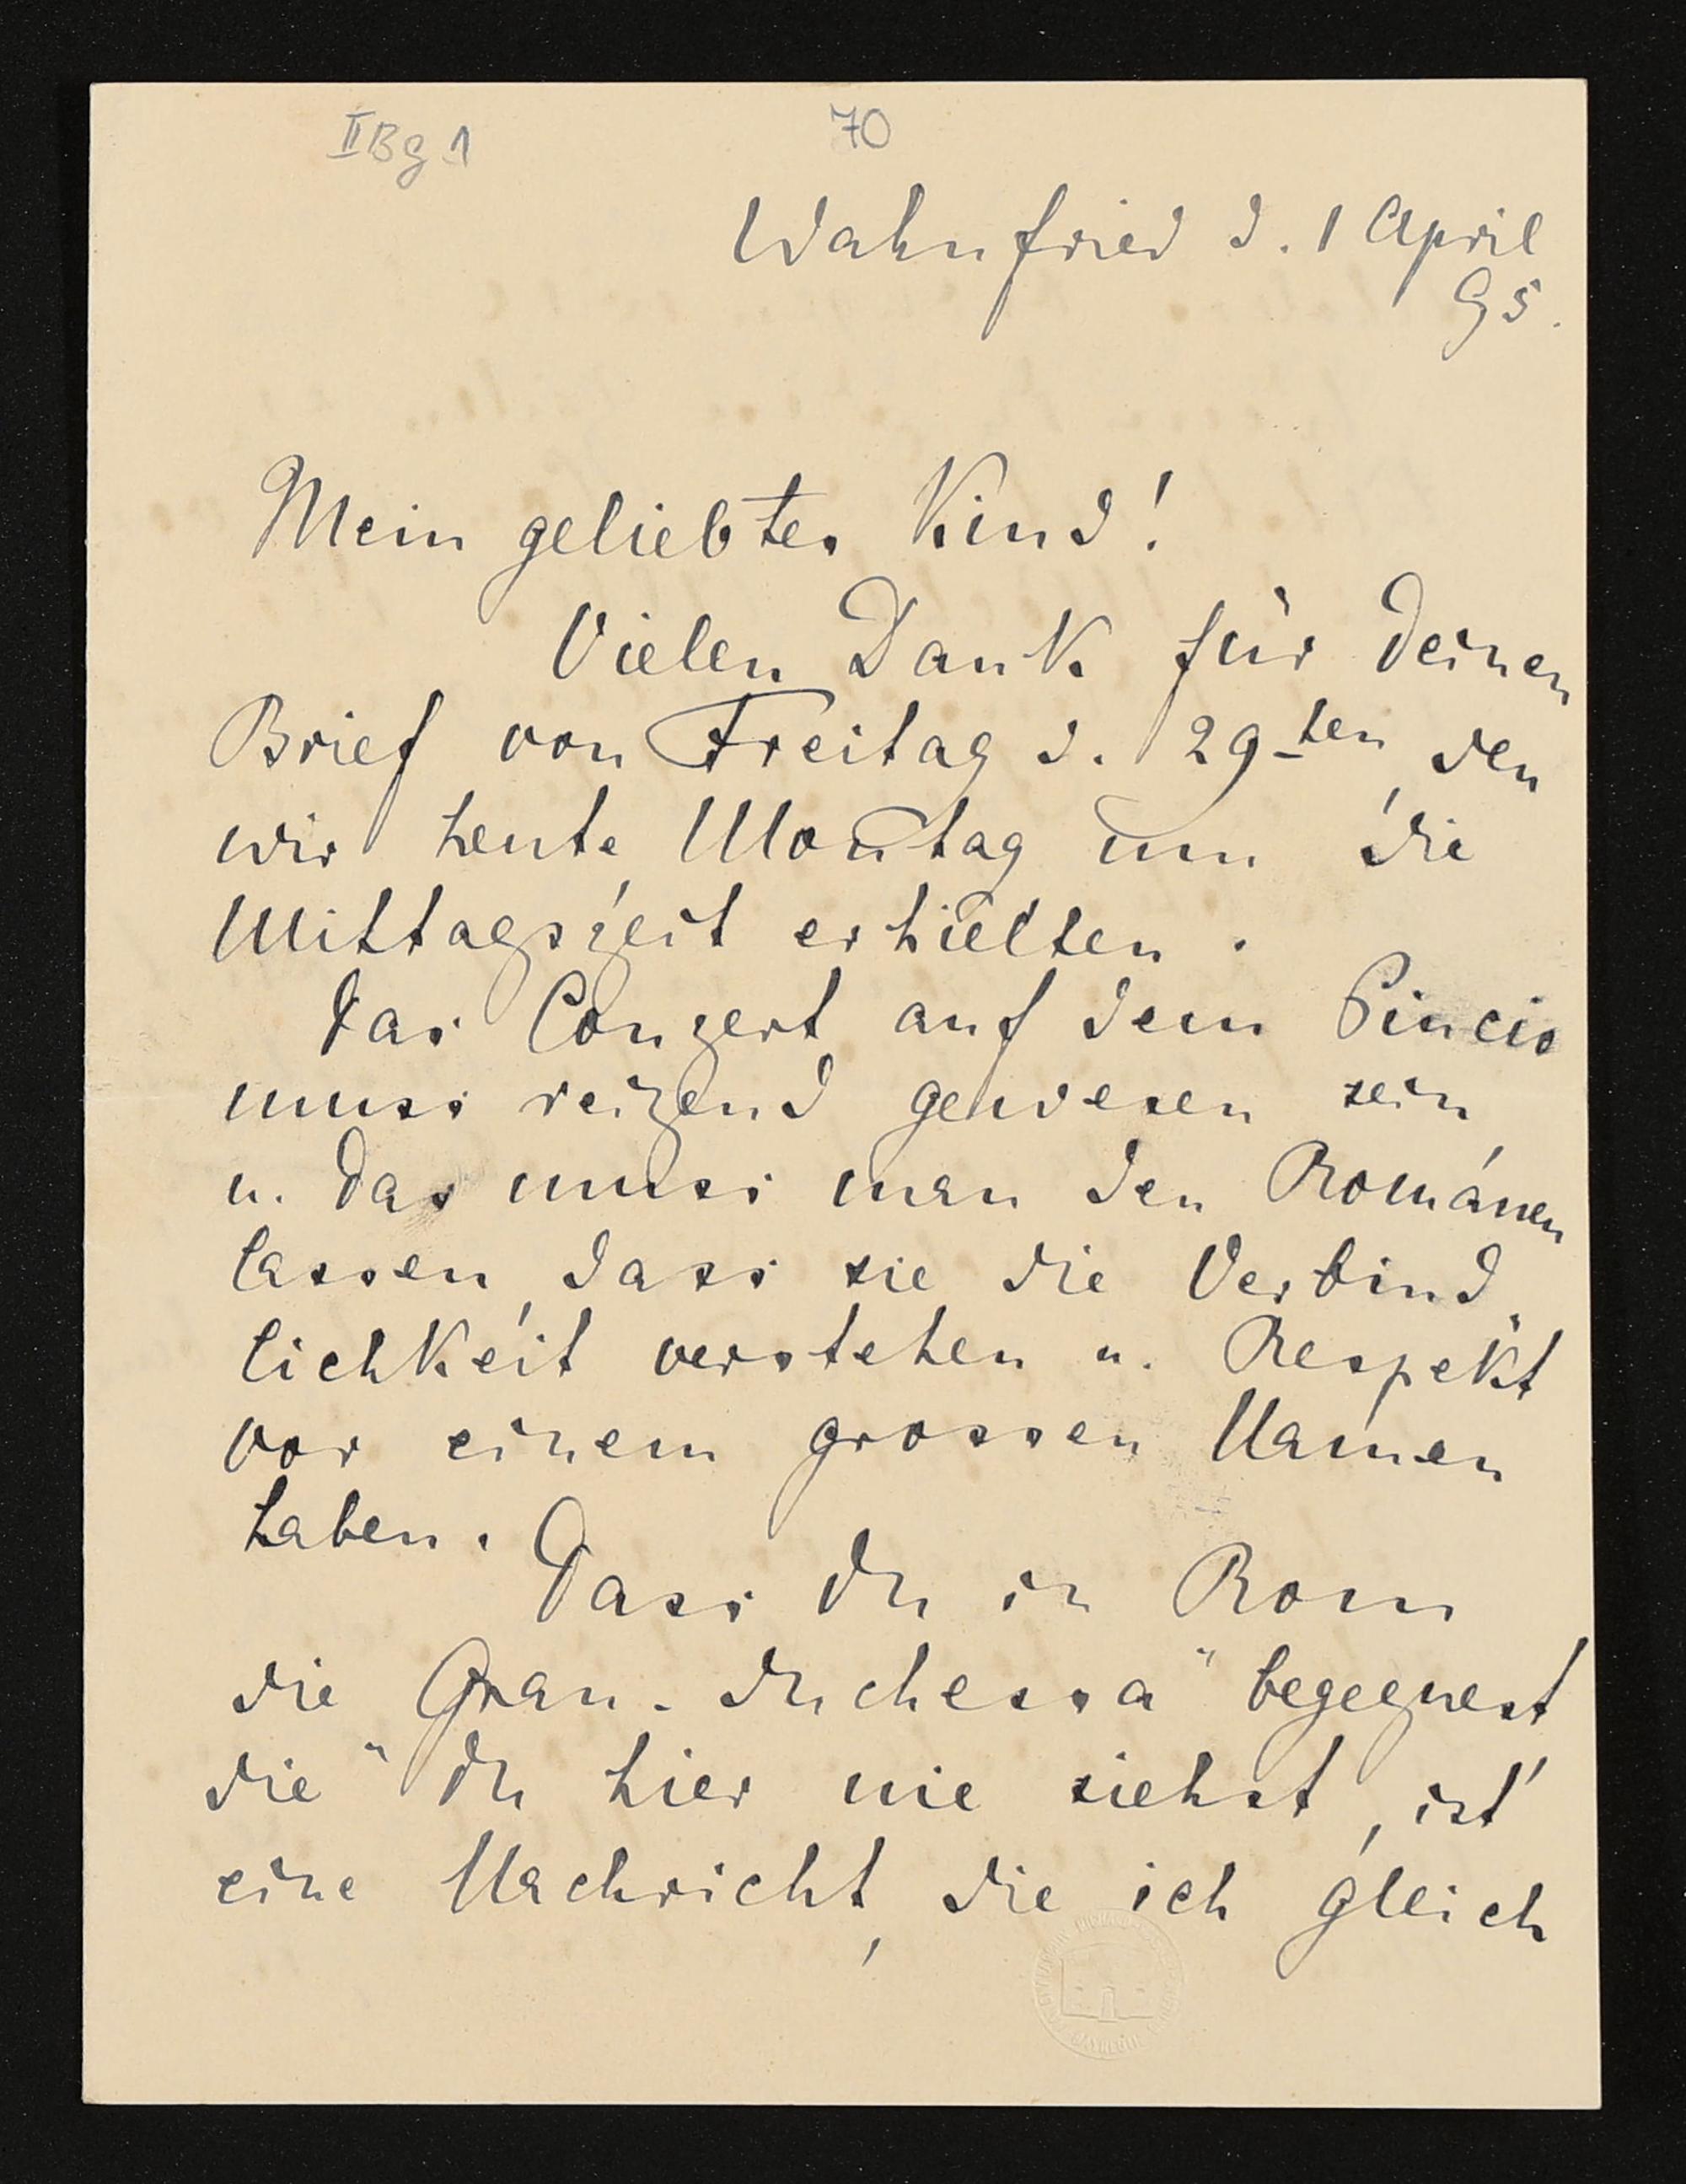 II Bg 1
70
Wahnfried d. 1 April
95.
Mein geliebtes Kind!
Vielen Dank für Deinen
Brief von Freitag d. 29ten, den
wir heute, Montag um die
Mittagszeit erhielten.
Das Conzert auf dem Pincio
muss reizend gewesen sein,
u. das muss man den Románen
lassen, dass sie die Verbind„
lichkeit verstehen u. Respekt
vor einem grossen Namen
haben.
Dass Du in Rom
die Gran-Duchessa" begegnest
die "Du hier nie siehst, ist
eine Nachricht, die ich gleich